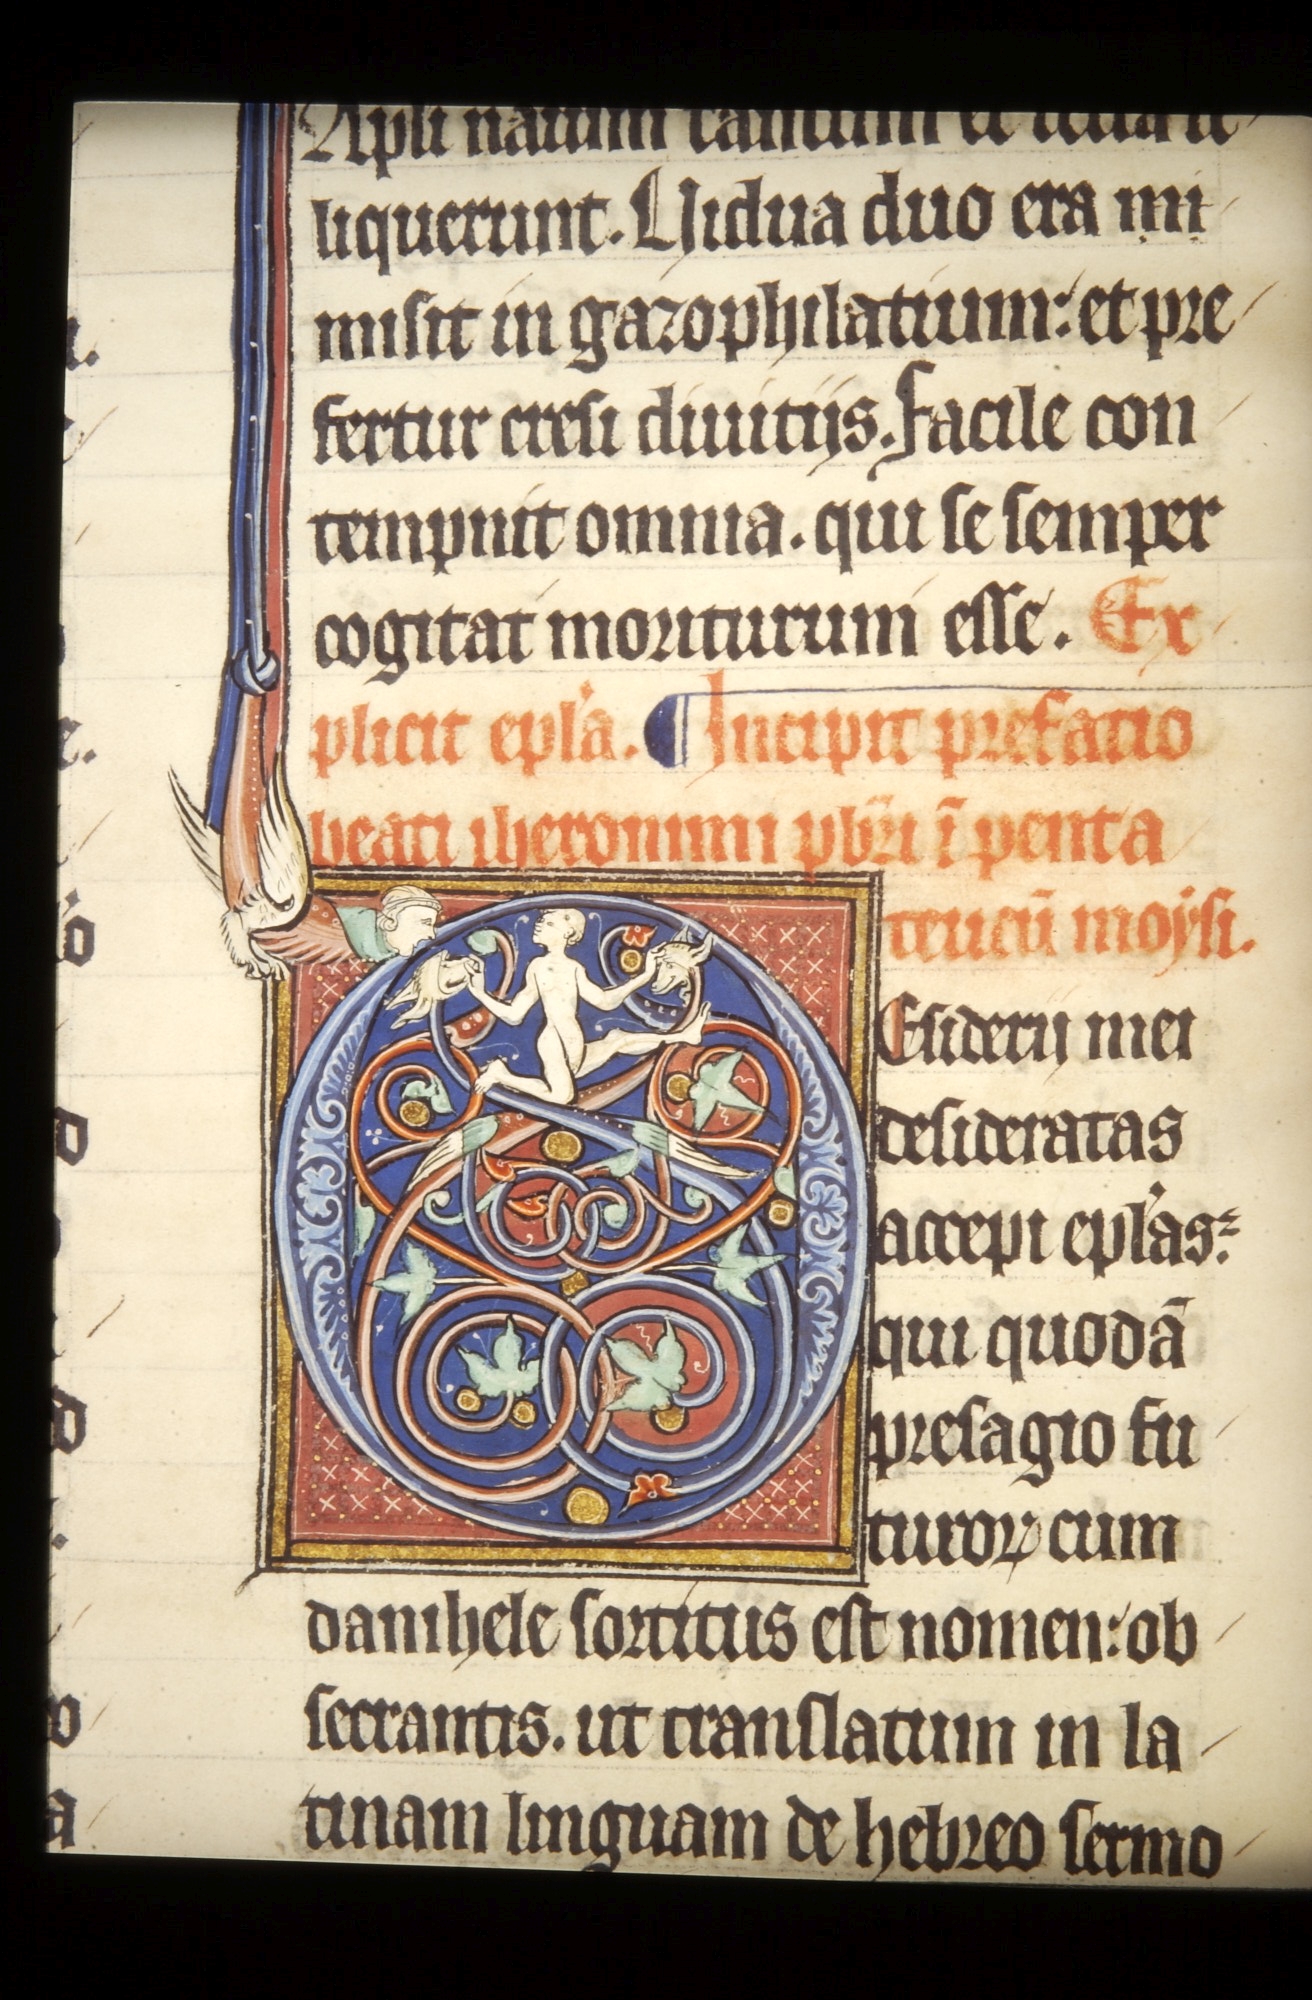 Apli nauim tantum et retia re
liquerunt. Uidua duo era mi
misit in gazophilatium: et pre
fertur cresi diuitijs. facile con
tempnit omnia. qui se semper
cogitat moriturum esse. Ex
plicit epl'a. ¶ Incipit prefatio
beati iheronimi pbr̄i ī penta
teucū moẏsi.
Esiderij mei
desideratas
accepi epl'as:
qui quodā
presagio fu
turoꝝ cum
danihele sortitus est nomen: ob
secrantis. ut translatum in la
tinam linguam de hebreo sermo